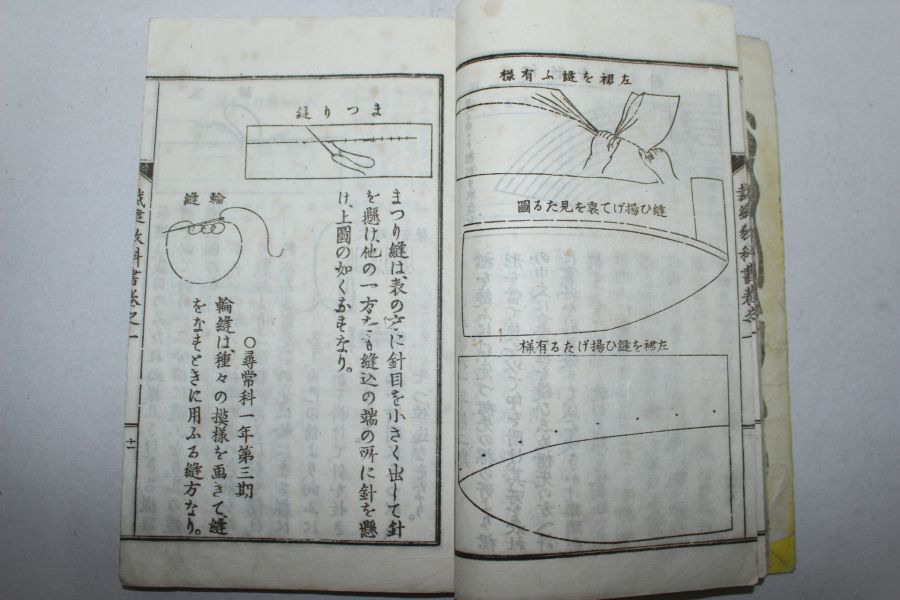 左裾を縫ふ有様
縫ひ揚げて裏を見たる圖
左裾を縫ひ揚げたる有様
裁縫教科書卷之一
まつり縫
まつり縫は、表の方に針目を小さく出して針
を懸け、他の一方なも縫込の端の所に針を懸
け、上圖の如くおすなり。
○尋常科一年第三期
輪縫
輪縫は種々の摸様を画きて、縫
をなすときに用ふる縫方なり。
裁縫教科書卷之一
十一